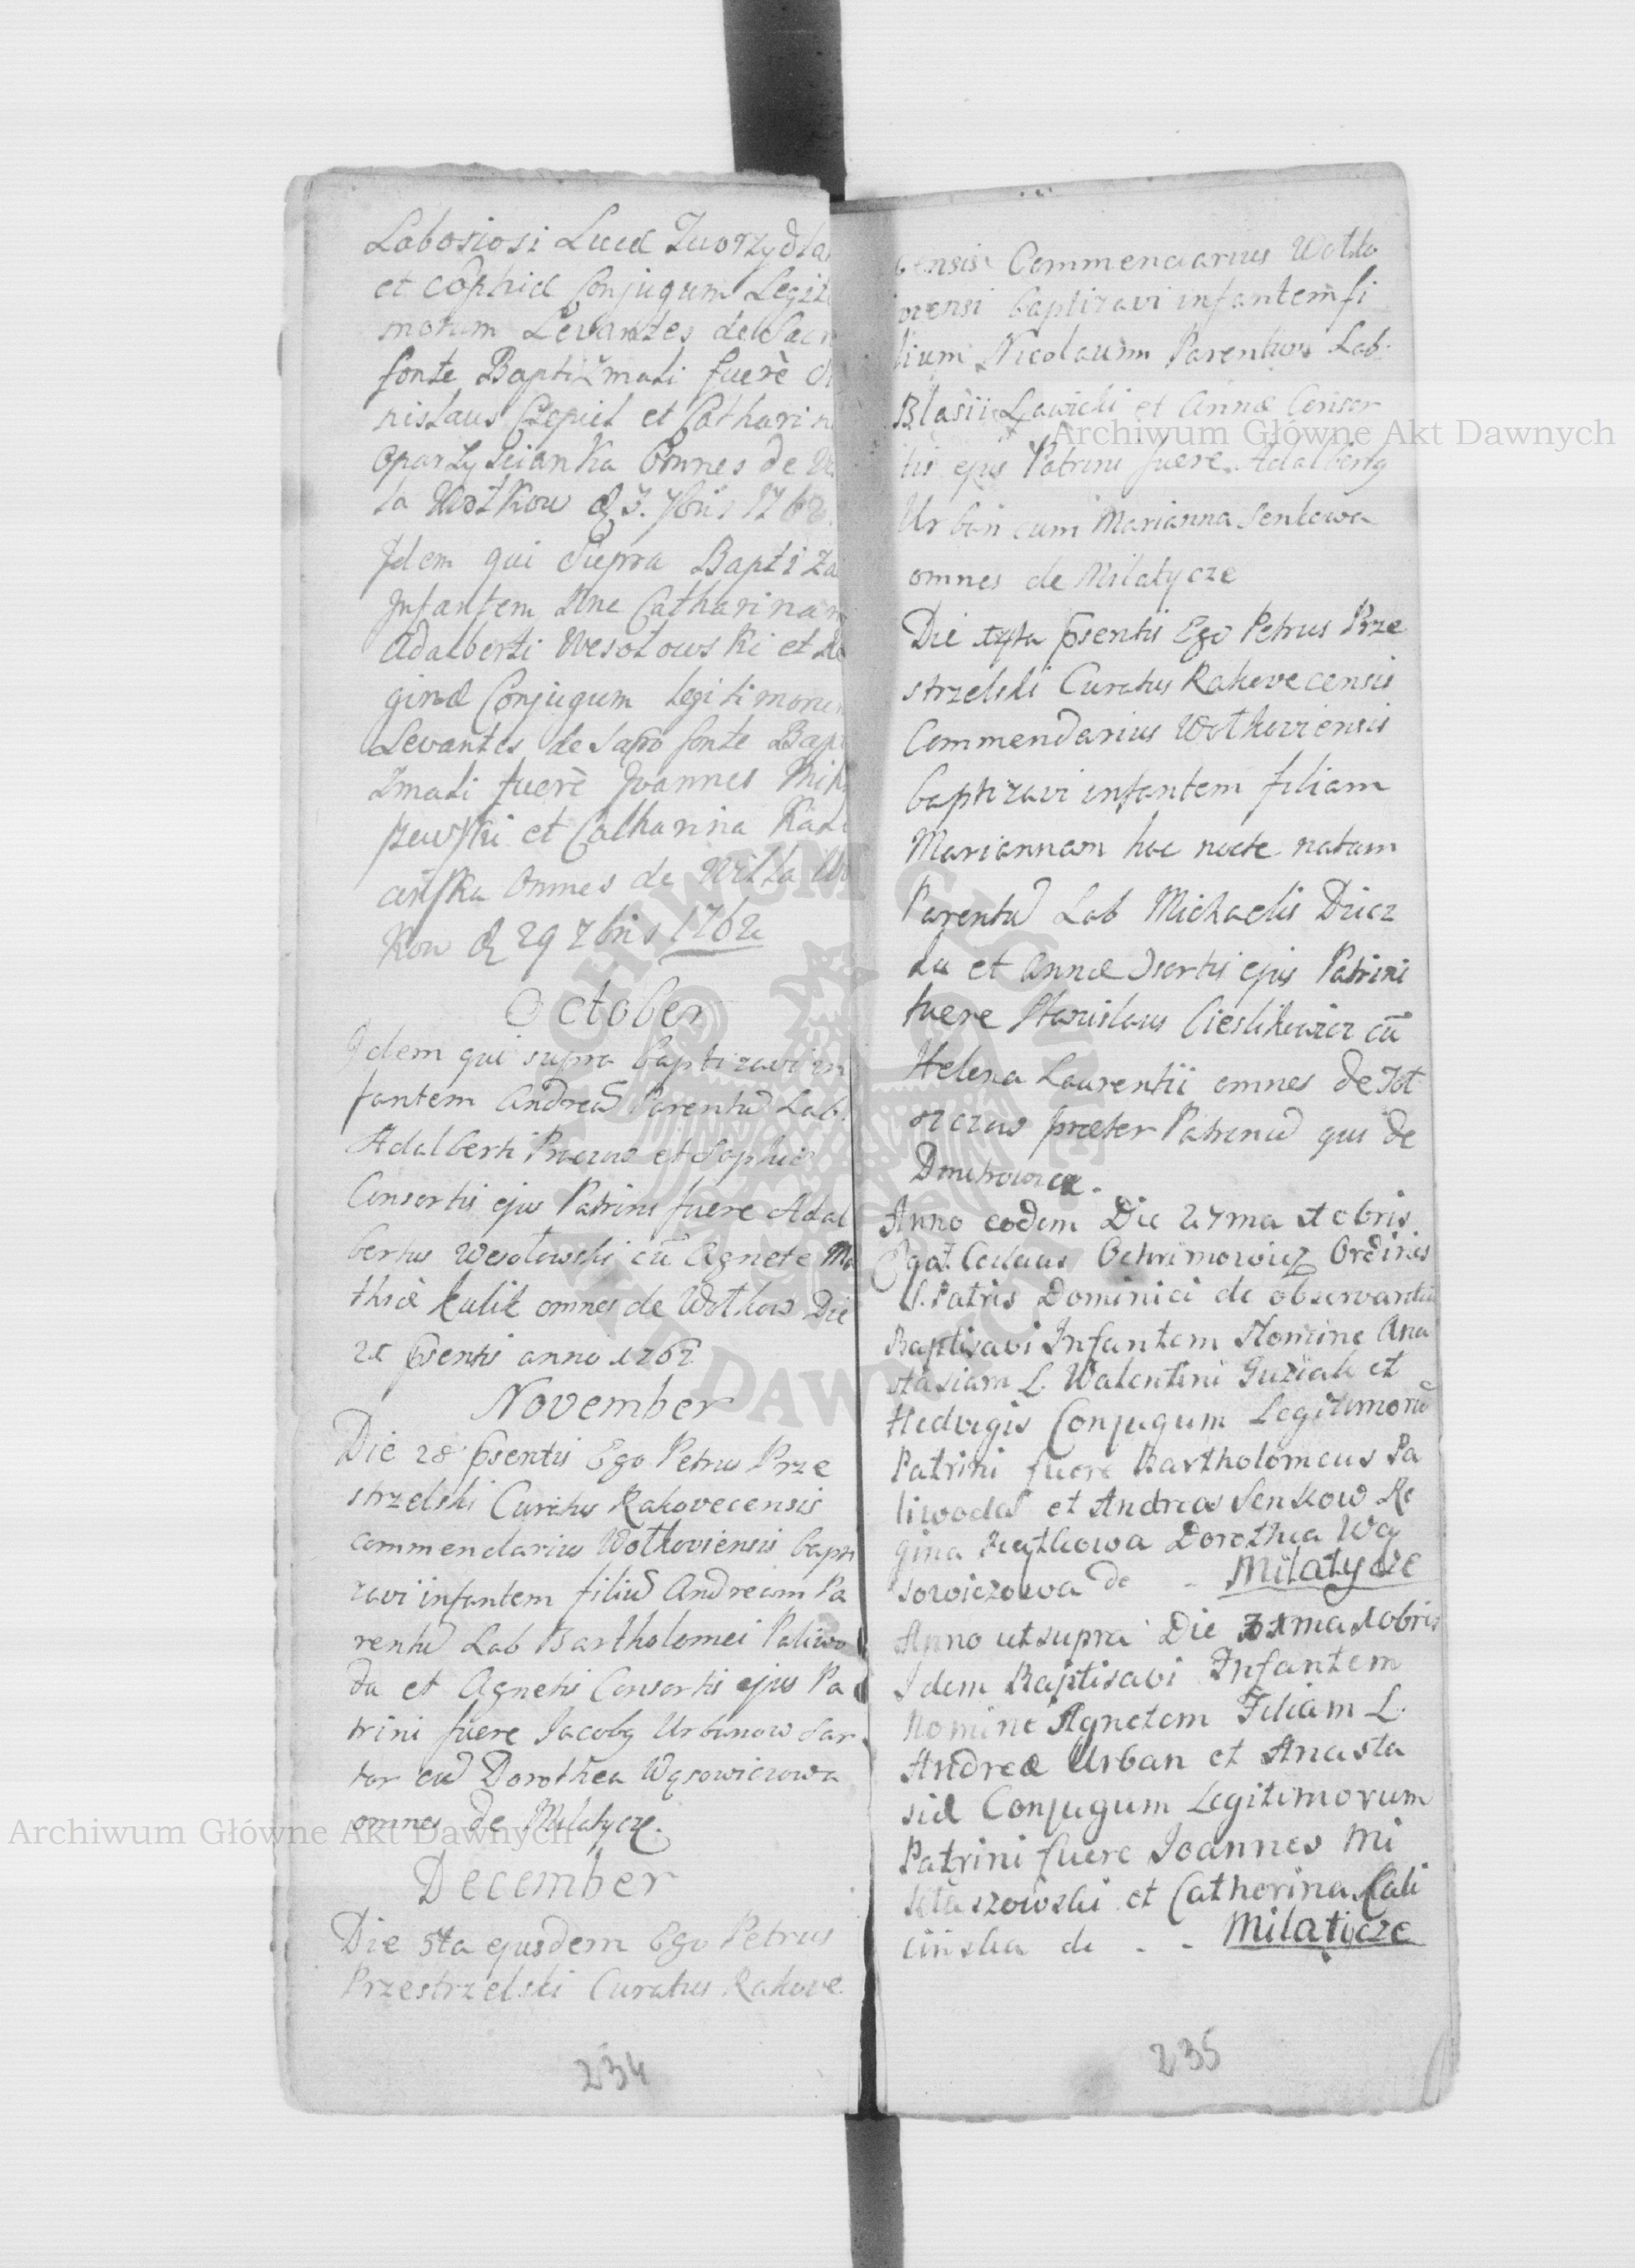 Laboriosi Lucæ Tworzydła
et Sophiæ Conjugum Legiti
morum Levantes de Sacr
fonte Baptizmali fuerè
nislaus Czepiel et Catharin
Oparzyscianka Omnes de
la Wołkow 3. 7bris 1762.
Idem qui Supra Baptiza
Infantem Nne Catharinam
Adalberti Wesołowski et Re
ginæ Conjugum legitimorum
Levantes de Sacro fonte Bapt
zmali fuerè Joannes
szewski et Catharina Kali
cińska Omnes de Villa Wo
kow D 29 7bris 1762
October
Idem qui supra baptizavi in
fantem Andreã Parentũ Lab.
Adalberti et Sophiæ
Consortis ejus Patrini fuere Adal
bertus Wesołowski cũ Agnete Ma
thiæ Kulik omnes de Wołkow Die
psentis anno 1762
November
Die 28 psentis Ego Petrus Prze
strzelski Curatus Rakovecensis
commendarius Wołkoviensis bapti
zavi infantem filiũ Andream Pa
rentũ Lab Bartholomei Paliwo
da et Agnetis Consortis ejus Pa
trini fuere Jacobg Urbanow Sar
tor cũ Dorothea Wąsowiczowa
omnes de Milatycze.
December
Die 5ta ejusdem Ego Petrus
Przestrzelski Curatus Rakove
234
censis Commendarius Wołko
viensi baptizavi infantem fi
lium Nicolaum Parentum Lab.
Blasii Ławicki et Annæ Consor
tis ejus Patrini fuere Adalbertg
Urban cum Marianna Senkowa
omnes de Milatycze
Die psentis Ego Petrus Prze
strzelski Curatus Rakovecensis
Commendarius Wołkoviensis
baptizavi infantem filiam
Mariannam hac nocte natam
Parentũ Lab Michaelis Dziez
da et Annæ Ɔsortis ejus Patrini
fuere Stanislaus Cieslikiewicz cũ
Helena Laurentii omnes de Toł
szczow præter Patrinũ qui de
Dmitrowice.
Anno eodem Die 27ma Xcbris
Ego Ochrimowicz Ordinis
S. Patris Dominici de observantia
Baptisavi Infantem Nomine Ana
stasiam L. Walentini Guziak et
Hedvigis Conjugum Legitimorũ
Patrini fuere Bartholomeus Pa
liwoda et Andreas Senkow Re
gina Dorothea Wą
sowiczowa de - Milatycze
Anno ut supra Die 31ma Xobris
Idem Baptisavi Infantem
Nomine Agnetem Filiam L.
Andreæ Urban et Anasta
siæ Conjugum Legitimorum
Patrini fuere Joannes Mi
kłaszowski et Catherina Kali
cińska de - - Milatycze
235
Archiwum Główne Akt Dawnych
Archiwum Główne Akt Dawnych
ARCHIWUM GŁÓWNE AKT DAWNYCH